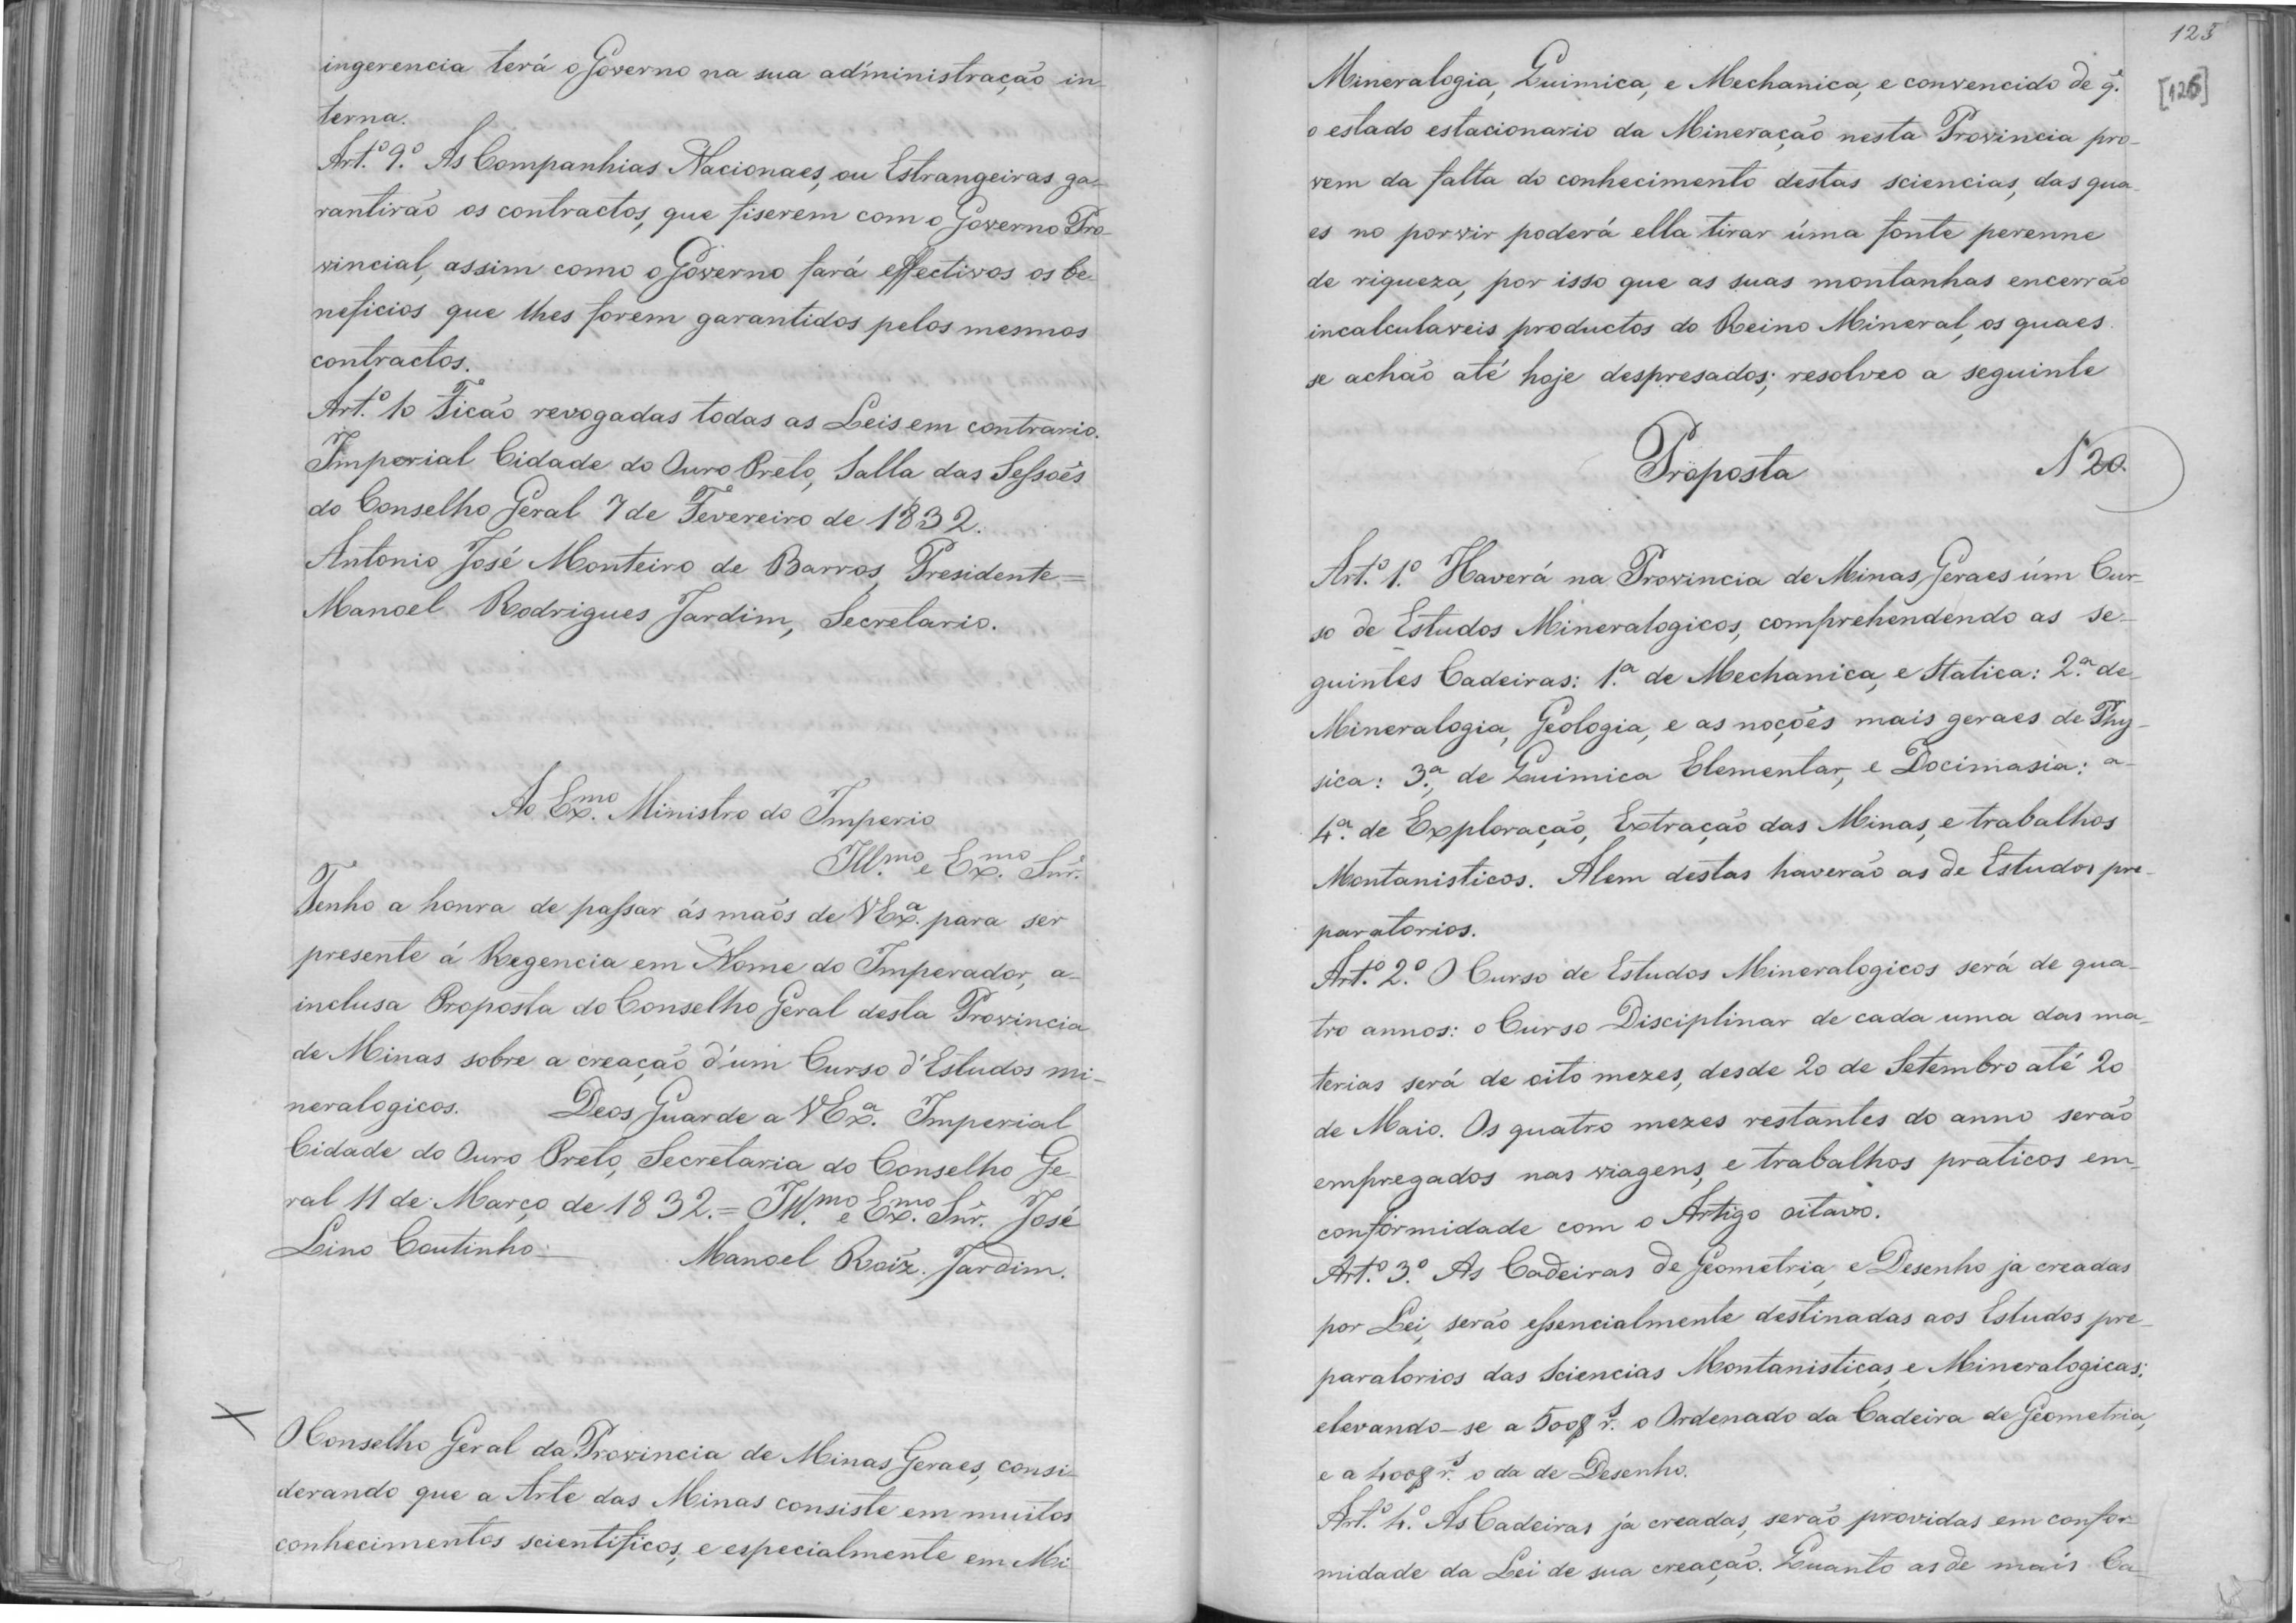 ingerencia terá o Governo na sua administração in-
terna.
Art.º 9.º As Companhias Nacionaes, ou Estrangeiras ga-
rantirão os contractos, que fiserem com o Governo Pro-
vincial, assim como o Governo fará effectivos os be-
neficios que lhes forem garantidos pelos mesmos
contractos.
Art.º 10 Ficão revogadas todas as Leis em contrario.
Imperial Cidade do Ouro Preto, Salla das Sessoẽs
do Conselho Geral 7 de Fevereiro de 1832.
Antonio José Monteiro de Barros, Presidente =
Manoel Rodrigues Jardim, Secretario.
Ao Ex.mo Ministro do Imperio
Ill.mo e Ex.mo Snr.
Tenho a honra de passar ás maõs de VEx.a para ser
presente á Regencia em Nome do Imperador, a-
inclusa Proposta do Conselho Geral desta Provincia
de Minas sobre a creação d'um Curso d'Estudos mi-
neralogicos. Deos Guarde a VEx.a Imperial
Cidade do Ouro Preto, Secretaria do Conselho Ge-
ral 11 de Março de 1832. = Ill.mo e Ex.mo Snr. José
Lino Coutinho = Manoel Roiz. Jardim.
O Conselho Geral da Provincia de Minas Geraes, consi-
derando que a Arte das Minas consiste em muitos
conhecimentos scientificos, e especialmente em Mi-
125
[126]
Mineralogia, Quimica, e Mechanica, e convencido de q.
o estado estacionario da Mineração nesta Provincia pro-
vem da falta do conhecimento destas sciencias, das qua-
es no porvir poderá ella tirar úma fonte perenne
de riqueza, por isso que as suas montanhas encerrão
incalculaveis productos do Reino Mineral, os quaes
se achão até hoje despresados; resolveo a seguinte
Proposta N 20.
Art.º 1.º Haverá na Provincia de Minas Geraes úm Cur-
so de Estudos Mineralogicos, comprehendendo as se-
guintes Cadeiras: 1.ª de Mechanica, e Statica: 2.ª de
Mineralogia, Geologia, e as noçoẽs mais geraes de Phy-
sica: 3.ª, de Quimica Elementar, e Docimasia: a-
4.ª de Exploração, Extração das Minas, e trabalhos
Montanisticos. Alem destas haverão as de Estudos pre-
paratorios.
Art.º 2.º O Curso de Estudos Mineralogicos será de qua-
tro annos: o Curso Disciplinar de cada uma das ma-
terias será de oito mezes, desde 20 de Setembro até 20
de Maio. Os quatro mezes restantes do anno serão
empregados nas viagens, e trabalhos praticos em
conformidade com o Artigo oitavo.
Art.º 3.º As Cadeiras de Geometria, e Desenho ja creadas
por Lei, serão essencialmente destinadas aos Estudos pre-
paratorios das Sciencias Montanisticas, e Mineralogicas;
elevando-se a 500$ r.s o Ordenado da Cadeira de Geometria,
e a 400$ r.s o da de Desenho.
Art.º 4.º As Cadeiras ja creadas, serão providas em confor-
midade da Lei de sua creação. Quanto as de mais Ca-